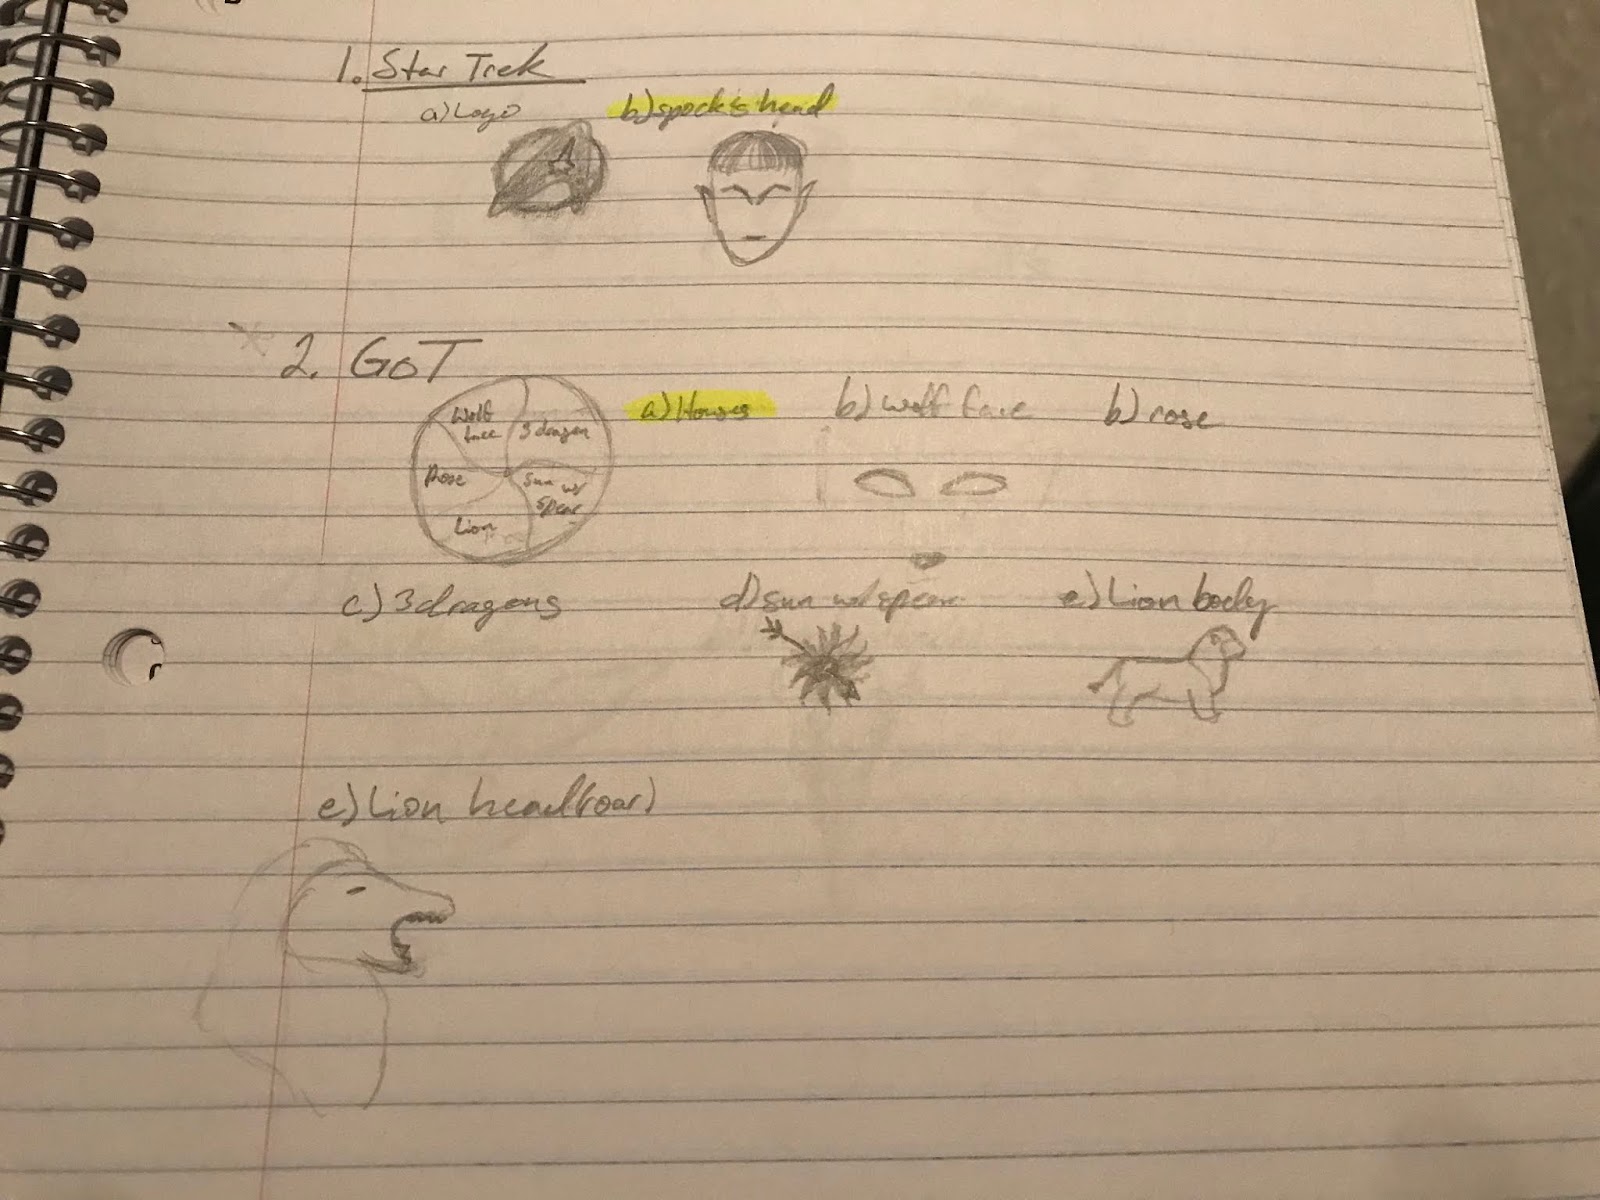 1. Star Trek
a) Logo b) spock's head
2. GoT
a) Houses b) wolf face b) rose
Wolf
face
3 dragon
Rose
sun w/
spear
Lion
c) 3 dragons d) sun w/ spear e) Lion body
e) Lion head (roar)